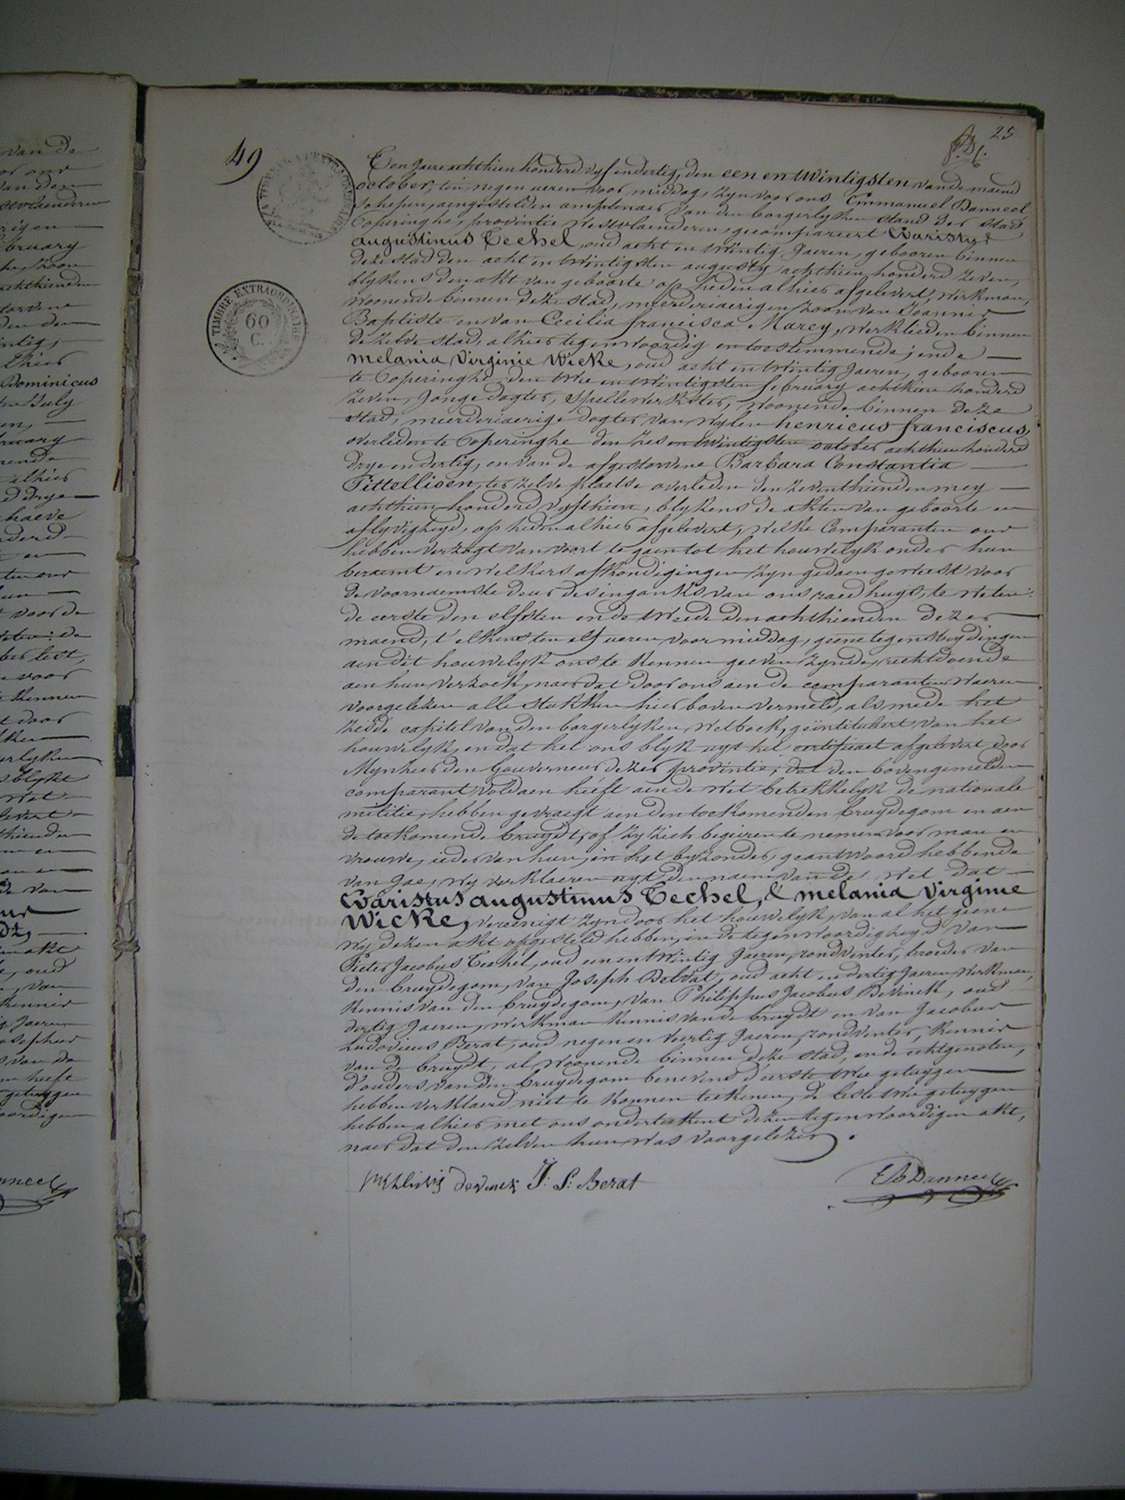 49
25
TIMBRE EXTRAORDINAIRE
60
C.
Een jaere achthien honderd vyf en dertig, den een en twintigsten van de maend
october, ten negen ueren voor middag, zyn voor ons Emmanuel Banneel
schepen, aengestelden amptenaer van den borgerlyken stand der stad
Poperinghe, provintie Westvlaenderen, gecompareert Evaristus
augustinus Techel, oud acht en twintig Jaeren, gebooren binnen
deze stad den acht en twintigsten augusty achthien honderd zeven,
blykens den akt van geboorte op heden alhier afgelevert, werkman,
woonende binnen deze stad, meerderjaerigen zoon van Joannes
Baptiste en van Cecilia francisca Marey, werklieden binnen
de zelve stad, alhier tegenwoordig en toestemmende; ende
melania Virginie Wicke, oud acht en twintig Jaeren, gebooren
te Poperinghe, den twee en twintigsten february achthien honderd
zeven, Jonge dogter, spellewerkster, woonende binnen deze
stad, meerderjaerige dogter van wylen henricus franciscus,
overleden te Poperinghe den zes en twintigsten october achthien honderd
drye en dertig, en van de afgestorvene Barbara Constantia
Fittellioen, ter zelve plaetse overleden den zeventhienden mey
achthien honderd vyfthien, blykens de akten van geboorte en
aflyvigheyd, op heden alhier afgelevert, welke Comparanten ons
hebben verzogt van voort te gaen tot het houwelyk onder hun
beraemt en welkers afkondigingen zyn gedaen geweest voor
de voornaemste deur des ingank's van ons raedhuys, te weten:
de eerste den elfsten en de tweede den achthienden dezer
maend, t'elkens ten elf ueren voor middag, geene tegenstrydingen
aen dit houwelyk ons te kennen geeven zynde, rechtdoende
aen hun verzoek, naer dat door ons aen de comparanten waeren
voorgeleken alle stukken hier boven vermeld, als mede het
zesde capitel van den borgerlyken wetboek, geïntituleert van het
houwelyk, en dat het ons blykt uyt het certificaet afgelevert door
Mynheer den Gouverneur dezer provintie, dat den bovengemelden
comparant voldaen heeft aen de wet betrekkelyk de nationale
militie, hebben gevraegt aen den toekomenden bruydegom en aen
de toekomende bruydt, of zy zich begeiren te nemen voor man en
vrouwe, ieder van hun, in het byzonder, geantwoord hebbende
van Jae, wy verklaeren uyt den naem van de wet dat
Evaristus augustinus Techel, & melania Virginie
Wicke, vereenigt zyn door het houwelyk, van al het geene
wy dezen akt opgesteld hebben, in de tegenwoordigheyd van
Pieter Jacobus Techel, oud een en twintig Jaeren, zondventer, broeder van
den bruydegom, van Joseph Delvat, oud acht en dertig Jaeren, werkman,
kennis van den bruydegom, van Philippus Jacobus Devinck, oud
dertig Jaeren, werkman kennis van de bruydt en van Jacobus
Ludovicus Berat, oud negen en veertig Jaeren, zondventer, kennis
van de bruydt, al woonende binnen deze stad, ende echtgenoten,
d'ouders van den bruydegom benevens d'eerste twee getuygen
hebben verklaerd niet te konnen teekenen, de leste twee getuygen
hebben alhier met ons onderteekent dezen tegenwoordigen akt,
naer dat den zelven hun was voorgelezen.
devinck J: L: Berat
E Banneel